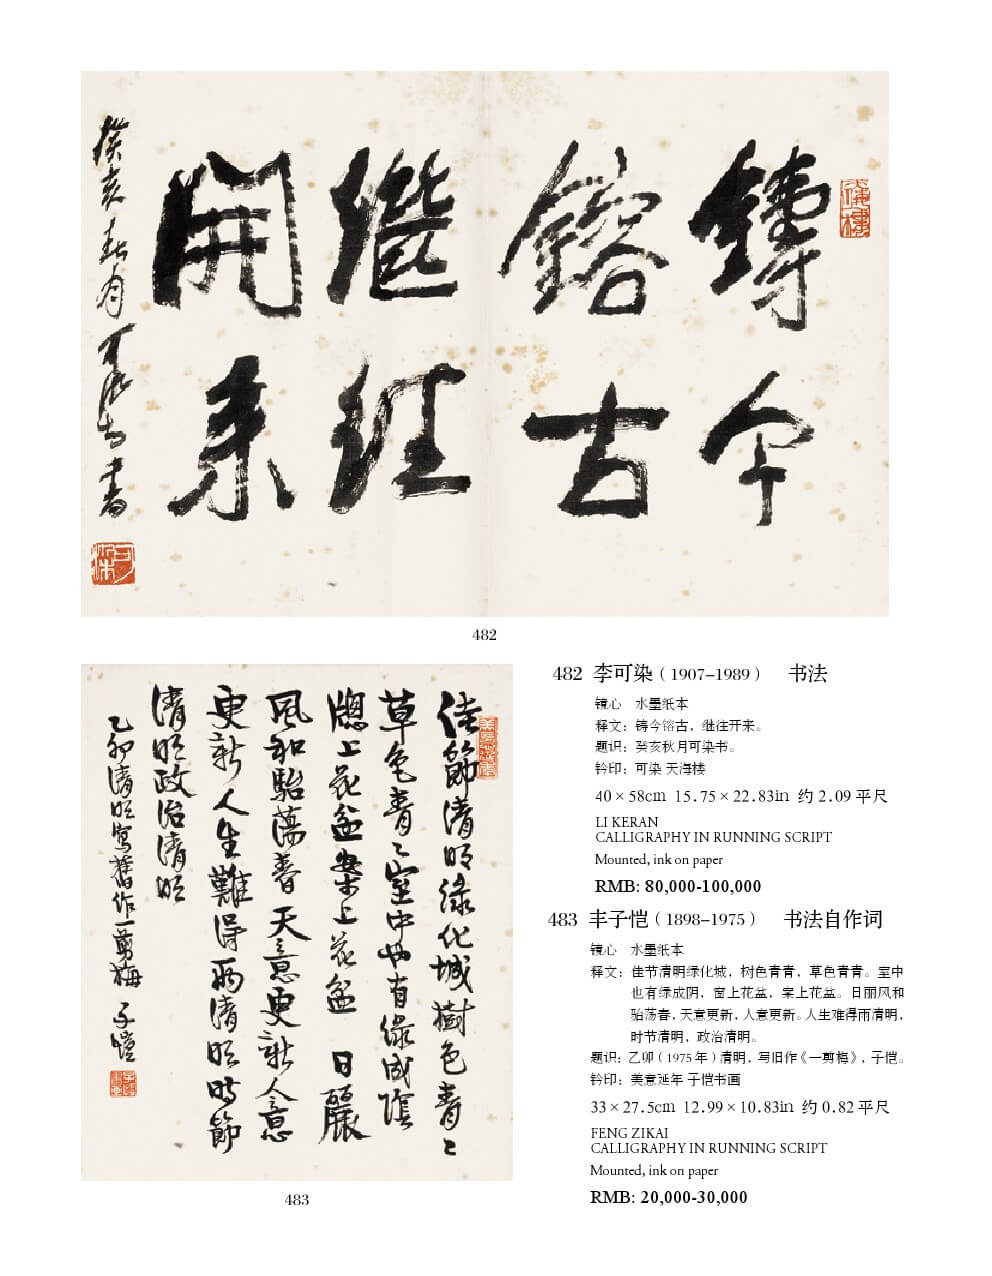 鑄今
鎔古
繼往
開来
癸亥秋月可染書
可染
482
佳節清明綠化城樹色青〻
草色青〻室中也有綠成陰
窗上花盆案上花盆 日麗
風和駘蕩春天意更新人意
更新人生難得兩清明時節
清明政治清明
乙卯清明寫舊作一剪梅 子愷
483
482 李可染（1907-1989） 书法
镜心 水墨纸本
释文：铸今镕古，继往开来。
题识：癸亥秋月可染书。
钤印：可染 天海楼
40×58cm 15.75×22.83in 约2.09平尺
LI KERAN
CALLIGRAPHY IN RUNNING SCRIPT
Mounted, ink on paper
RMB: 80,000-100,000
483 丰子恺（1898-1975） 书法自作词
镜心 水墨纸本
释文：佳节清明绿化城，树色青青，草色青青。室中
也有绿成阴，窗上花盆，案上花盆。日丽风和
骀荡春，天意更新，人意更新。人生难得雨清明，
时节清明，政治清明。
题识：乙卯（1975年）清明，写旧作《一剪梅》，子恺。
钤印：美意延年 子恺书画
33×27.5cm 12.99×10.83in 约0.82平尺
FENG ZIKAI
CALLIGRAPHY IN RUNNING SCRIPT
Mounted, ink on paper
RMB: 20,000-30,000